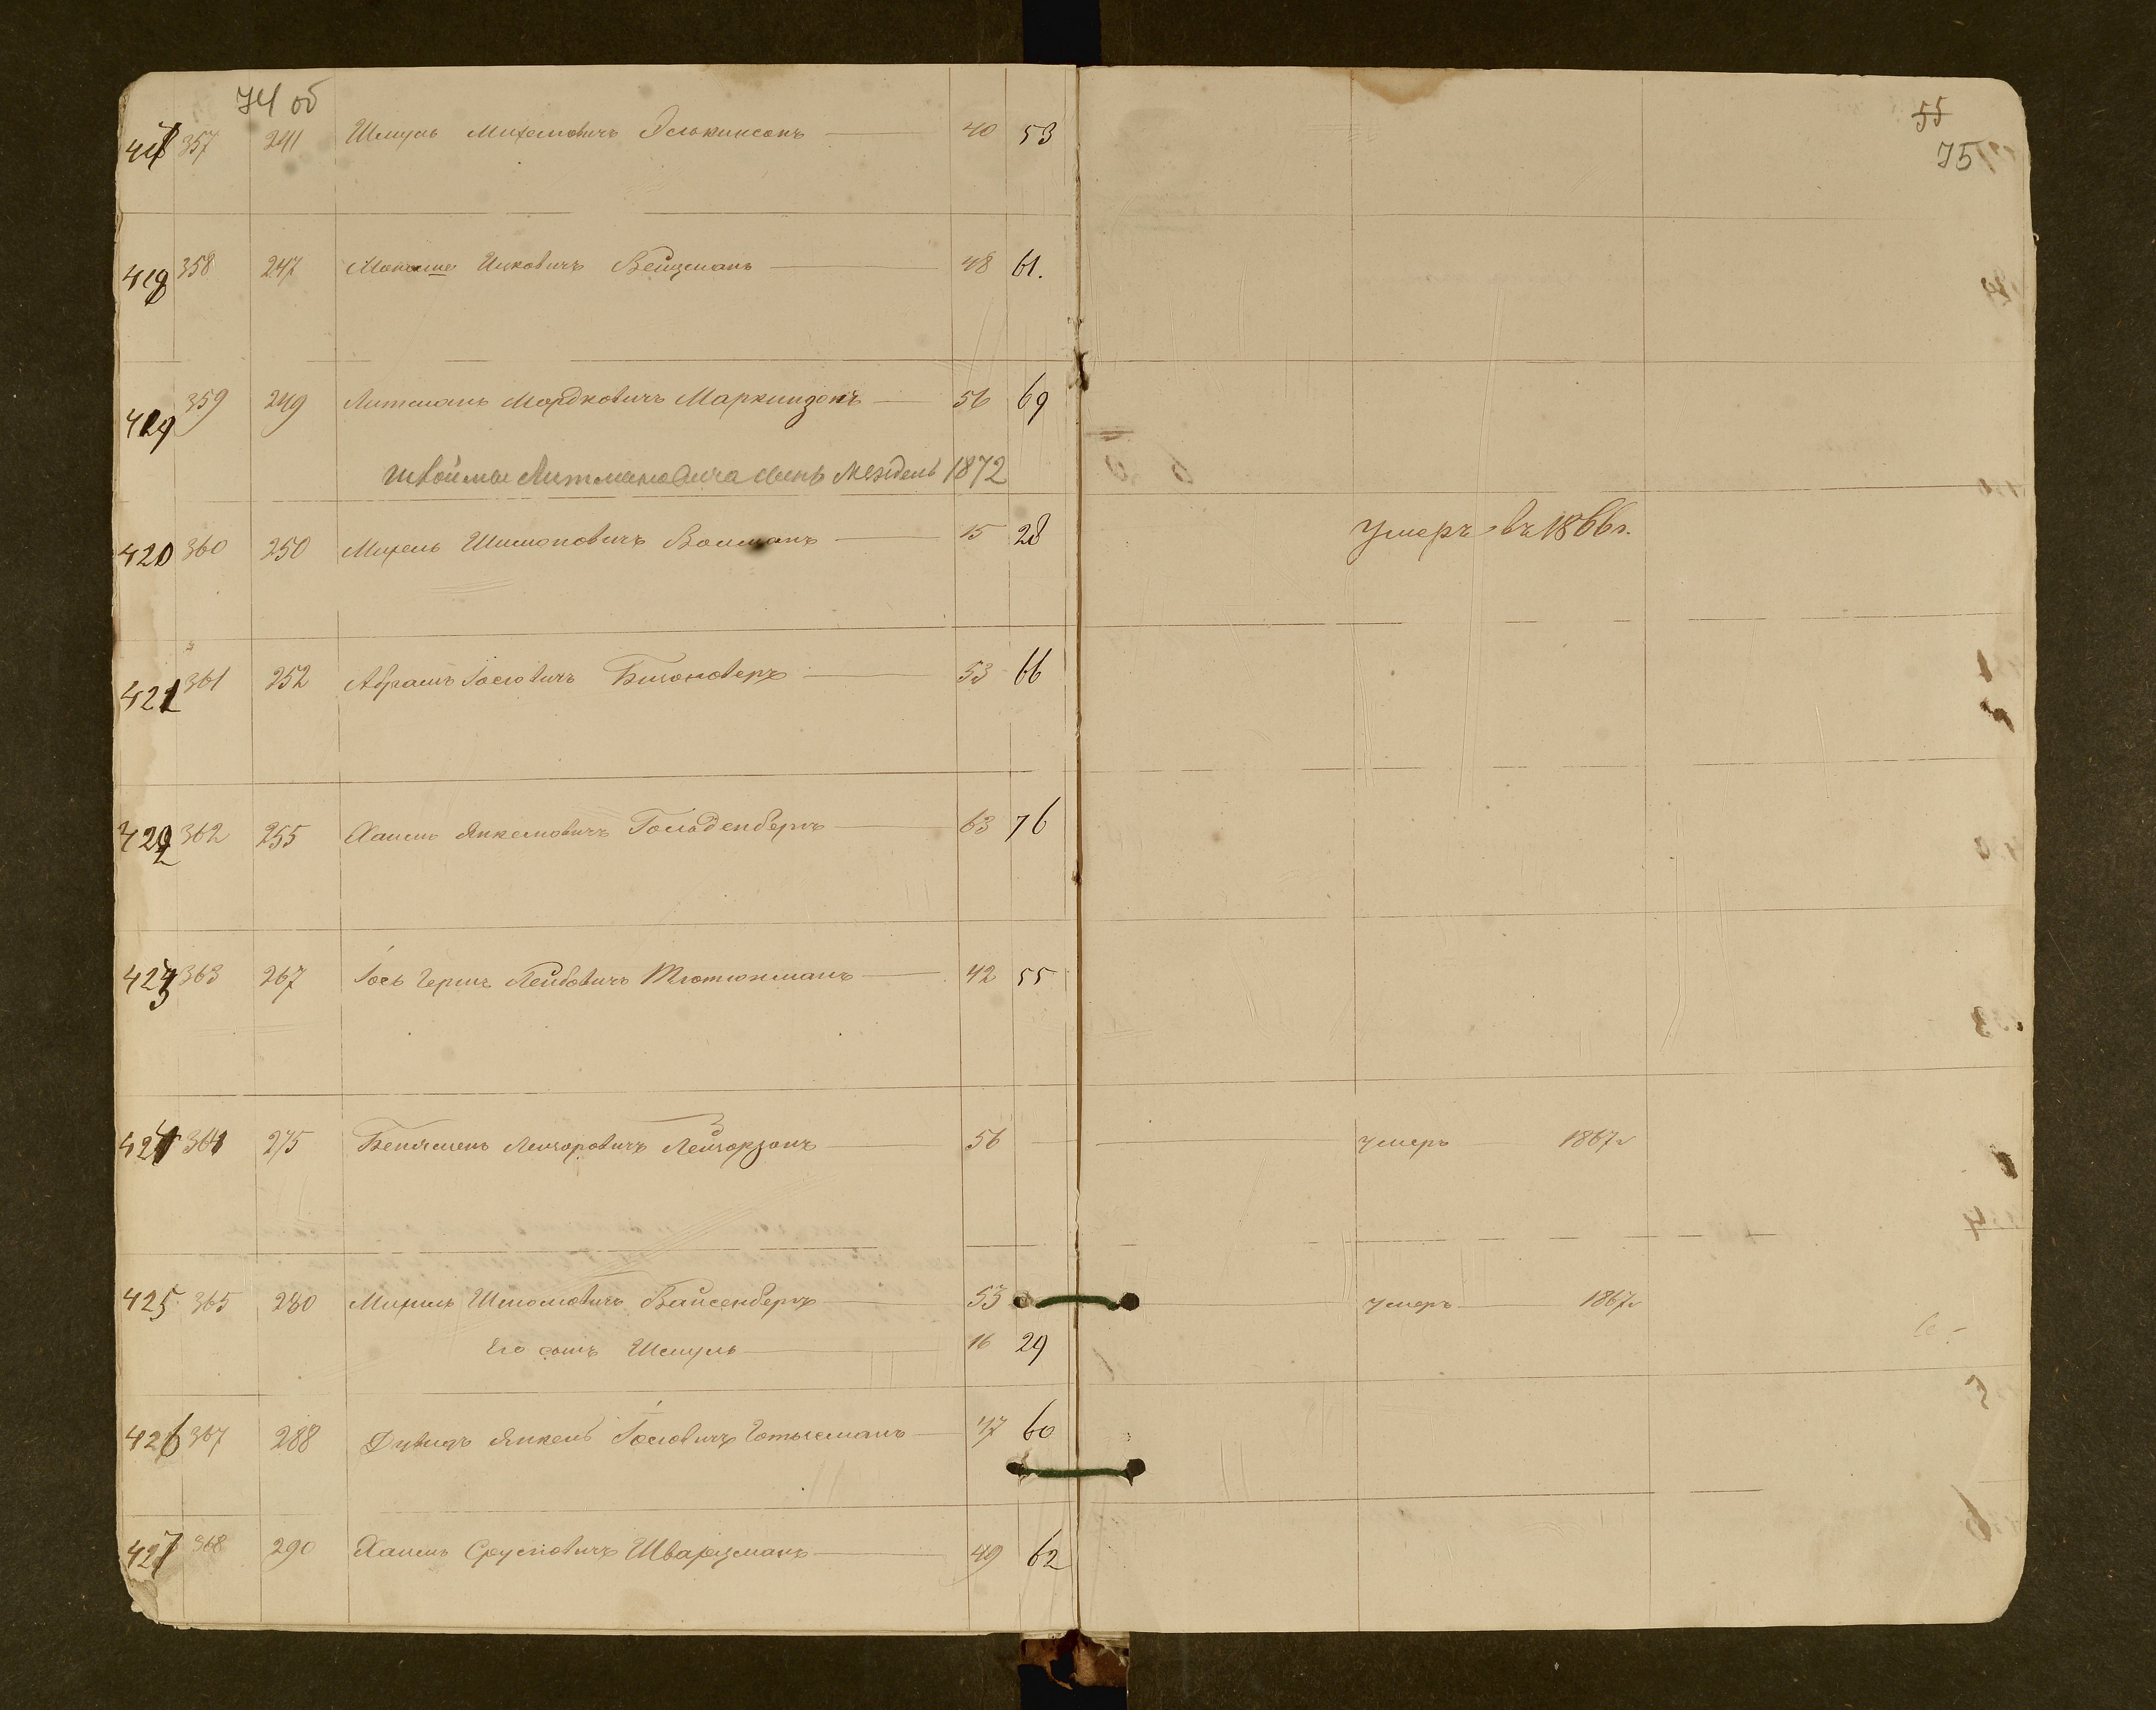 74 об
55
75
417 357 241 Шмуль Михелевичъ Эльокинсонъ 40 53
418 358 247 Монаше Ицковичъ Вейцманъ 48 61.
419 359 249 Литманъ Мордковичъ Маркинзонъ 56 69
Литмановича сынъ Мендель 1872
420 360 250 Мирель Шимоновичъ 15 28 Умеръ въ 1866 г.
421 361 252 Абрамъ Іосiовичъ Билоковеръ 53 66
422 362 255 Хаимъ Янкелевичъ Гольденберъ 63 76
423 363 267 Іось Гершъ Лейбовичъ Тютюнманъ 42 55
424 364 275 Бениаминъ Лейзоровичъ Лейзорзонъ 56 умеръ 1867 г
425 365 280 Михель Шломовичъ Вайсенберъ 53 умеръ 1867 г
Его сынъ Шмуль 16 29
426 367 288 Дувидъ Янкель Іосiовичъ 47 60
427 368 290 Хаимъ Сруловичъ Шварцманъ 49 62